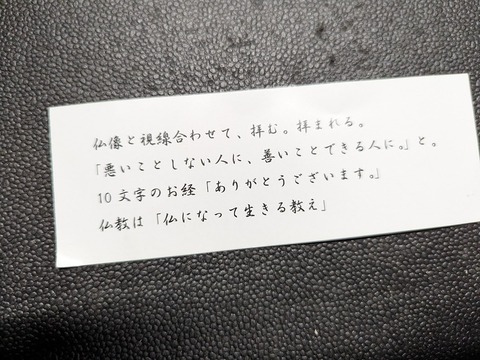 仏像と視線合わせて、拝む。拝まれる。
「悪いことしない人に、善いことできる人に。」と。
10文字のお経「ありがとうございます。」
仏教は「仏になって生きる教え」